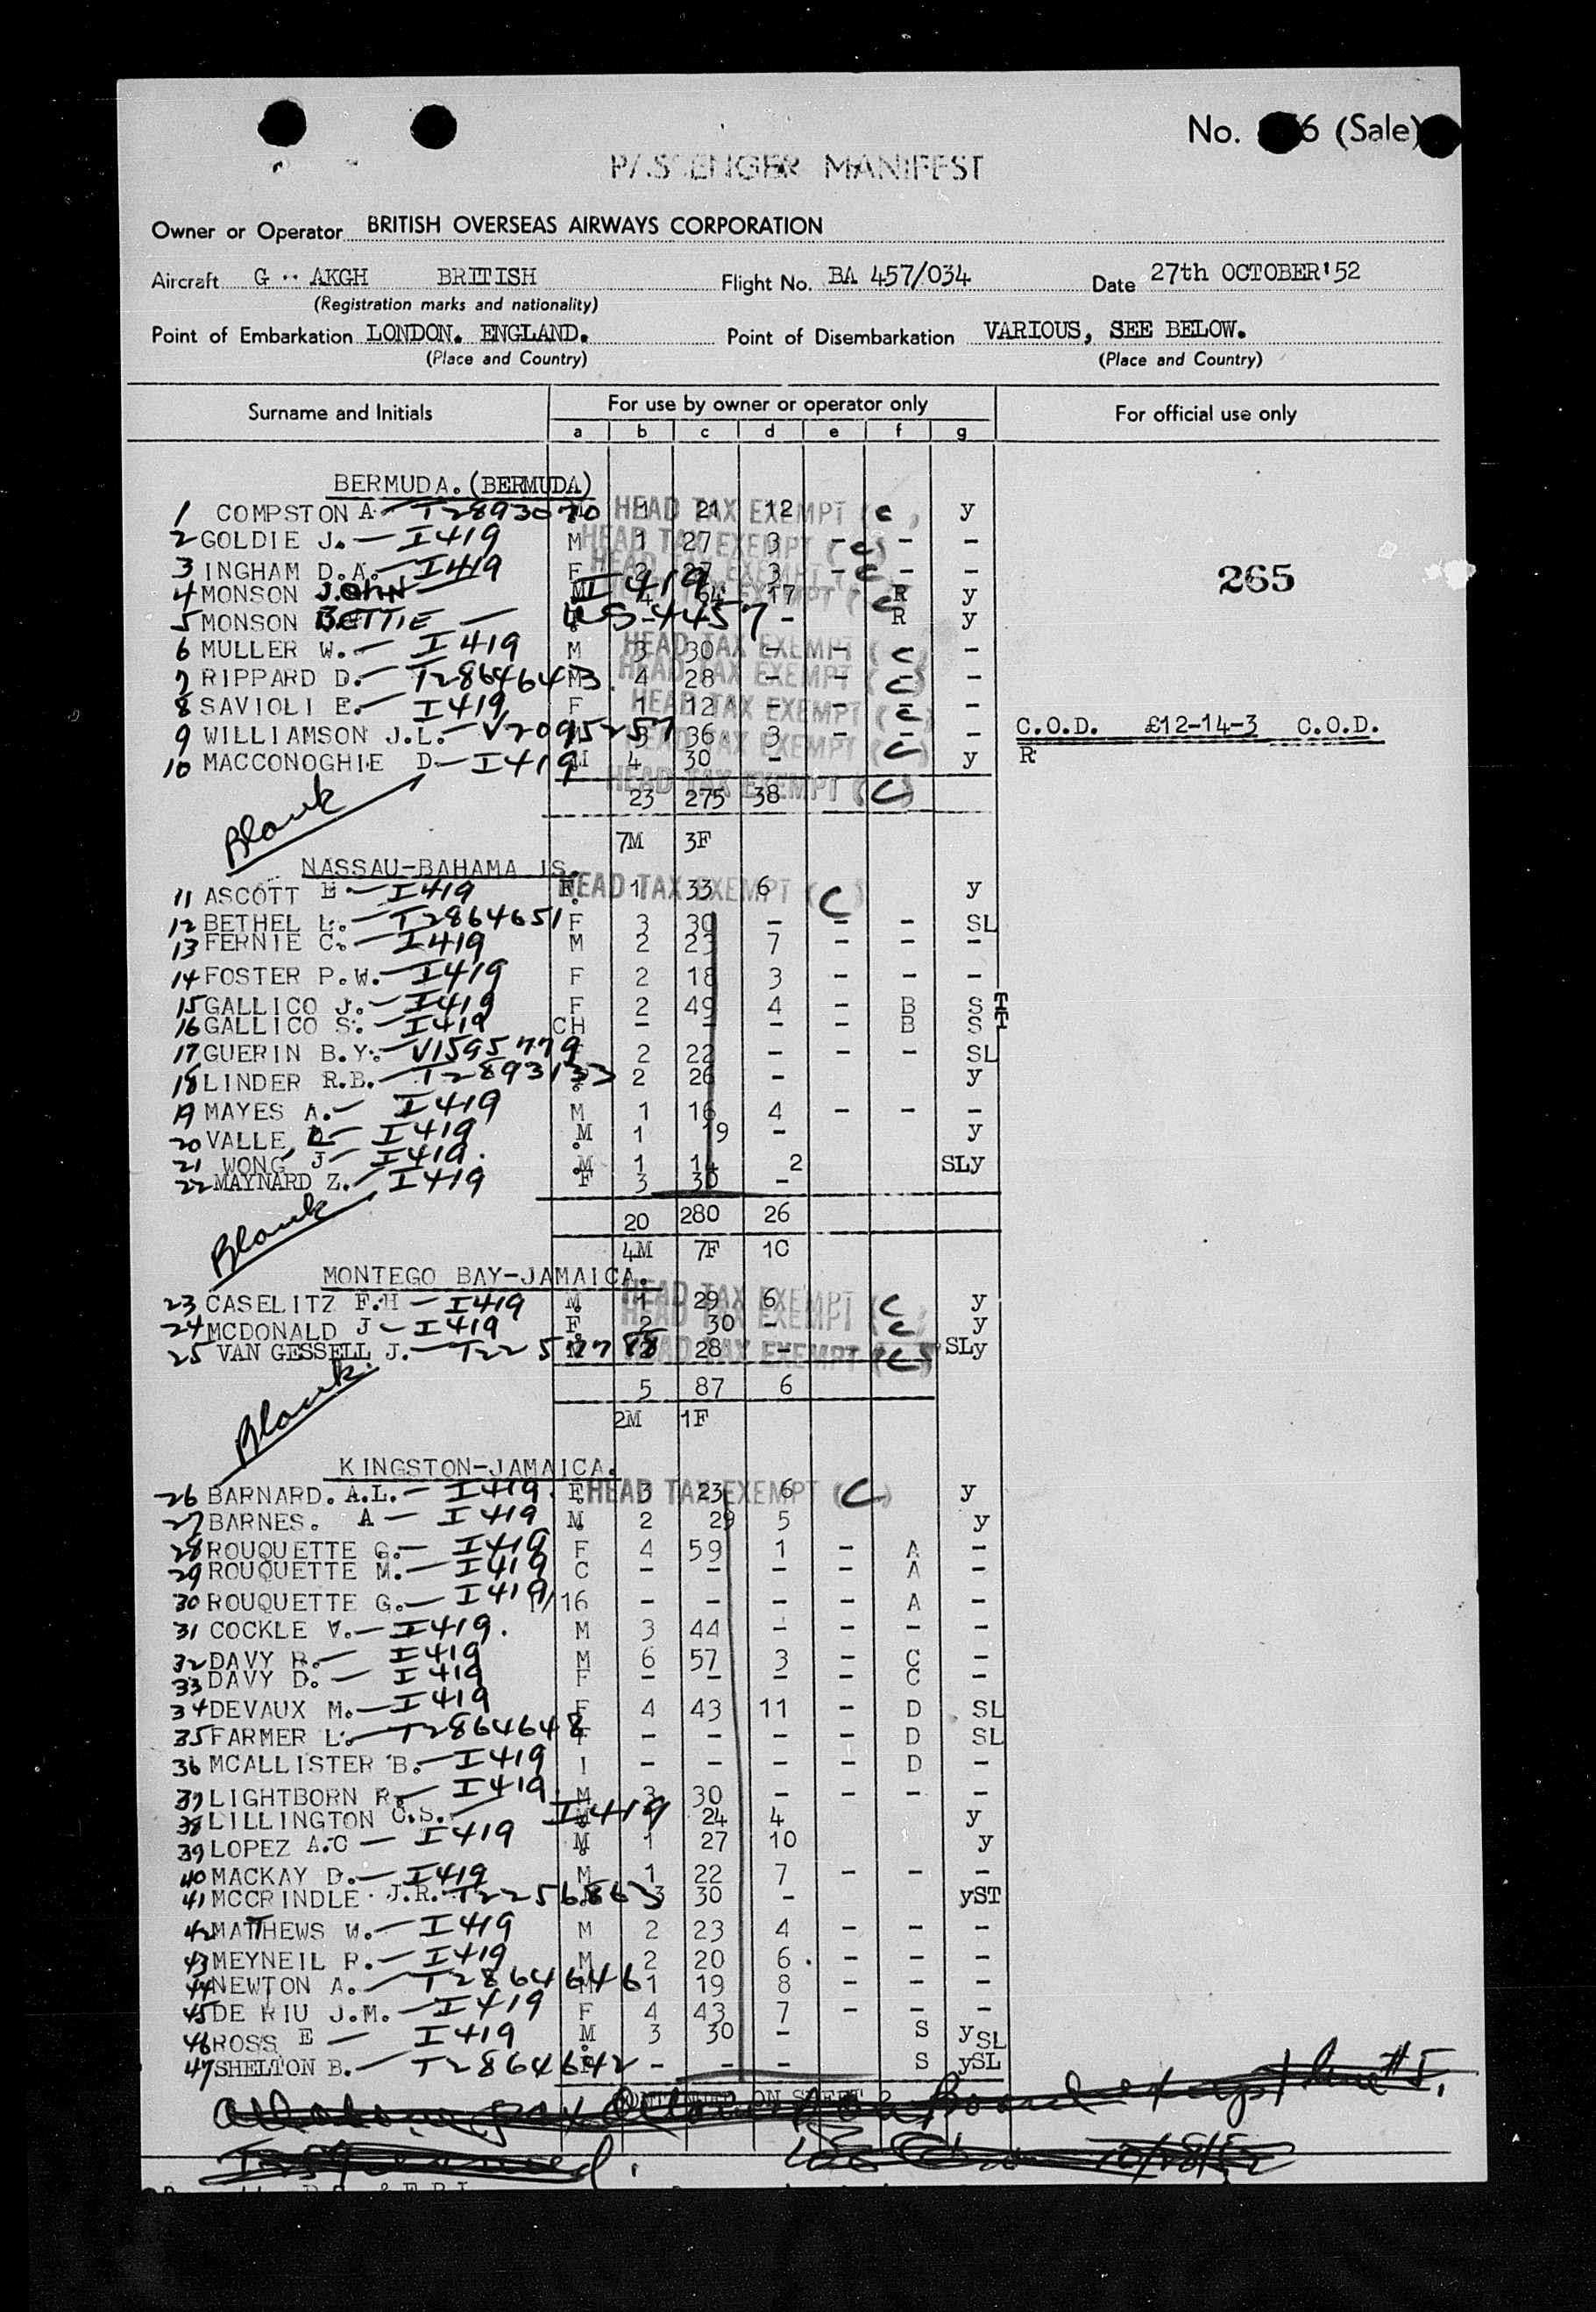 No. 6 (Sale)
PASSENGER MANIFEST
Owner or Operator BRITISH OVERSEAS AIRWAYS CORPORATION
Aircraft G - AKGH BRITISH Flight No. BA 457/034 Date 27th OCTOBER'52
(Registration marks and nationality)
Point of Embarkation LONDON. ENGLAND. Point of Disembarkation VARIOUS, SEE BELOW.
(Place and Country) (Place and Country)
Surname and Initials For use by owner or operator only For official use only
a b c d e f g
BERMUDA. (BERMUDA)
1 COMPSTON A - T2893070 1 21 12 HEAD TAX EXEMPT (C) y
2 GOLDIE J. - I419 M 1 27 3 - - - HEAD TAX EXEMPT (C)
3 INGHAM D.A. - I419 F 2 27 3 - - - HEAD TAX EXEMPT (C)
265
4 MONSON JOHN - I419 M 4 64 17 R y
5 MONSON BETTIE - US-4457 - R y
6 MULLER W. - I419 M 3 30 - - - HEAD TAX EXEMPT (C)
7 RIPPARD D. - T2864643 M 4 28 - - - - HEAD TAX EXEMPT (C)
8 SAVIOLI E. - I419 F 1 12 - - - - HEAD TAX EXEMPT (C)
9 WILLIAMSON J.L. - V2095257 3 36 3 - - - HEAD TAX EXEMPT (C) C.O.D. £12-14-3 C.O.D.
10 MACCONOGHIE D - I419 M 4 30 - y R
HEAD TAX EXEMPT (C)
23 275 38
Blank
7M 3F
NASSAU-BAHAMA IS.
11 ASCOTT E - I419 F. 1 33 6 HEAD TAX EXEMPT (C) y
12 BETHEL L. - T2864651 F 3 30 - - - SL
13 FERNIE C. - I419 M 2 23 7 - - -
14 FOSTER P.W. - I419 F 2 18 3 - - -
15 GALLICO J. - I419 F 2 49 4 - B S T
16 GALLICO S. - I419 CH - - - - B S T
17 GUERIN B.Y. - V1595779 2 22 - - - SL
18 LINDER R.B. - T2893133 2 26 - y
19 MAYES A. - I419 M 1 16 4 - - -
20 VALLE, - I419 M 1 19 - y
21 WONG J - I419. M 1 14 2 SLy
22 MAYNARD Z. - I419 F 3 30 -
20 280 26
Blank
4M 7F 1C
MONTEGO BAY-JAMAICA.
23 CASELITZ F.H - I419 M. 1 29 6 HEAD TAX EXEMPT (C) y
24 MCDONALD J - I419 F. 2 30 - HEAD TAX EXEMPT (C) y
25 VAN GESSELL J. - T2257788 M 2 28 - HEAD TAX EXEMPT (C) SLy
5 87 6
Blank.
2M 1F
KINGSTON-JAMAICA.
26 BARNARD. A.L. - I419. F. 3 23 6 HEAD TAX EXEMPT (C) y
27 BARNES. A - I419 M. 2 29 5 y
28 ROUQUETTE G. - I419 F 4 59 1 - A -
29 ROUQUETTE M. - I419 C - - - - A -
30 ROUQUETTE G. - I419 /16 - - - - A -
31 COCKLE V. - I419. M 3 44 - - - -
32 DAVY R. - I419 M 6 57 3 - C -
33 DAVY D. - I419 F - - - - C -
34 DEVAUX M. - I419 F 4 43 11 - D SL
35 FARMER L. - T2864648 F - - - - D SL
36 MCALLISTER B. - I419 I - - - - D -
37 LIGHTBORN R. - I419. M 3 30 - - - -
38 LILLINGTON C.S. - I419 24 4 y
39 LOPEZ A.C - I419 M. 1 27 10 y
40 MACKAY D. - I419 M 1 22 7 - - -
41 MCCRINDLE J.R. T2256863 3 30 - yST
42 MATTHEWS W. - I419 M 2 23 4 - - -
43 MEYNEIL R. - I419 M 2 20 6 - - -
44 NEWTON A. - T2864646 M 1 19 8 - - -
45 DE RIU J.M. - I419 F 4 43 7 - - -
46 ROSS E - I419 M. 3 30 - S ySL
47 SHELTON B. - T2864642 - - - S ySL